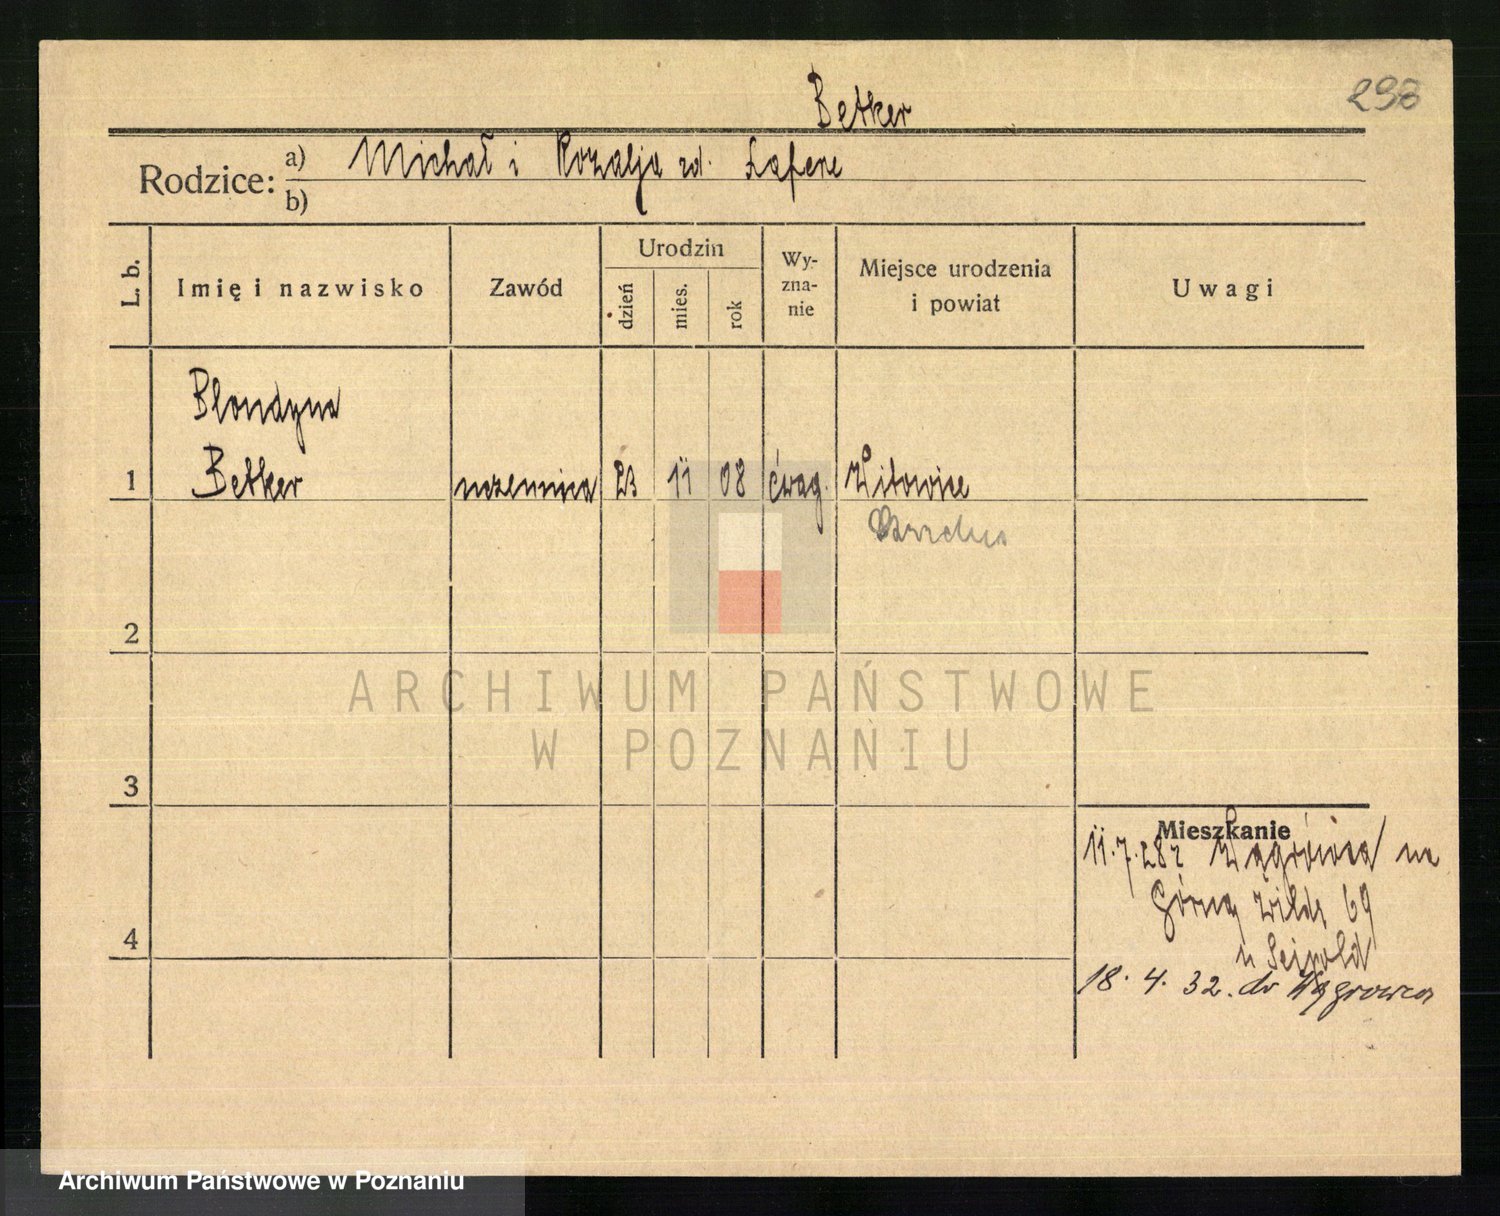 298
Betker
Rodzice: a) Michał i Rozalja zd.
b)
L. b.
Imię i nazwisko
Zawód
Urodzin
dzień
mies.
rok
Wy-
zna-
nie
Miejsce urodzenia
i powiat
Uwagi
Blondyna
1 Betker uczennica 23 11 08 ewag. Witowice
2
3
4
Mieszkanie
11.7.28 z Wągrówca na
Górną Wildę 69
u Seipold
18. 4. 32. do Wągrowca
ARCHIWUM PAŃSTWOWE
W POZNANIU
Archiwum Państwowe w Poznaniu